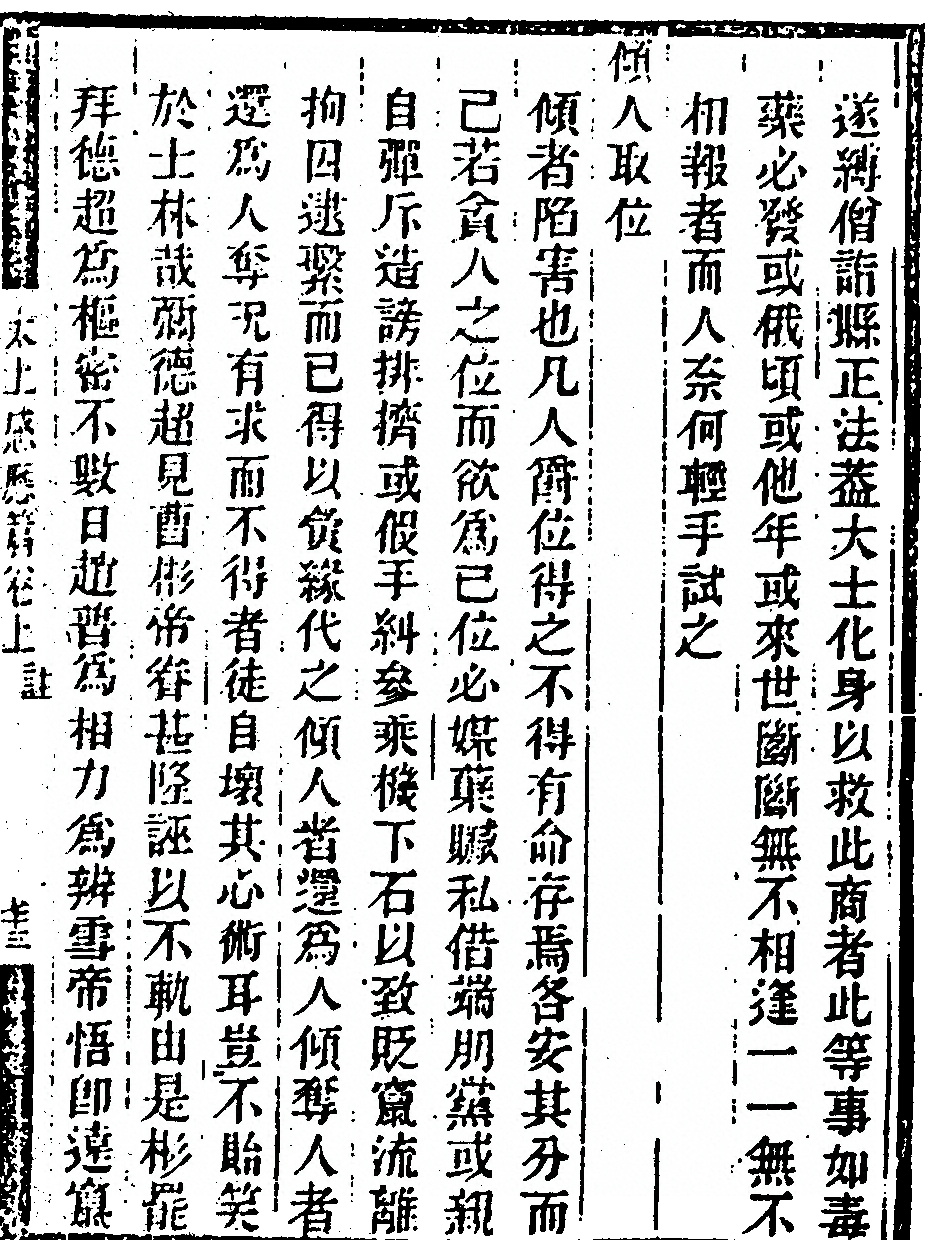 遂縛僧詣縣正法蓋大士化身以救此商者此等事如毒
藥必發或俄頃或他年或來世斷斷無不相逢一一無不
相報者而人奈何輕手試之
傾人取位
傾者陷害也凡人爵位得之不得有命存焉各安其分而
己若貪人之位而欲為己位必媒蘖贓私借端朋黨或親
自彈斥造謗排擠或假手糾參乘機下石以致貶竄流離
拘囚逮繫而已得以夤緣代之傾人者還為人傾奪人者
還為人奪況有求而不得者徒自壞其心術耳豈不貽笑
於士林哉彌德超見曹彬帝眷甚隆誣以不軌由是彬罷
拜德超為樞密不數日趙普為相力為辨雪帝悟即遠竄
太上感應篇卷上
註